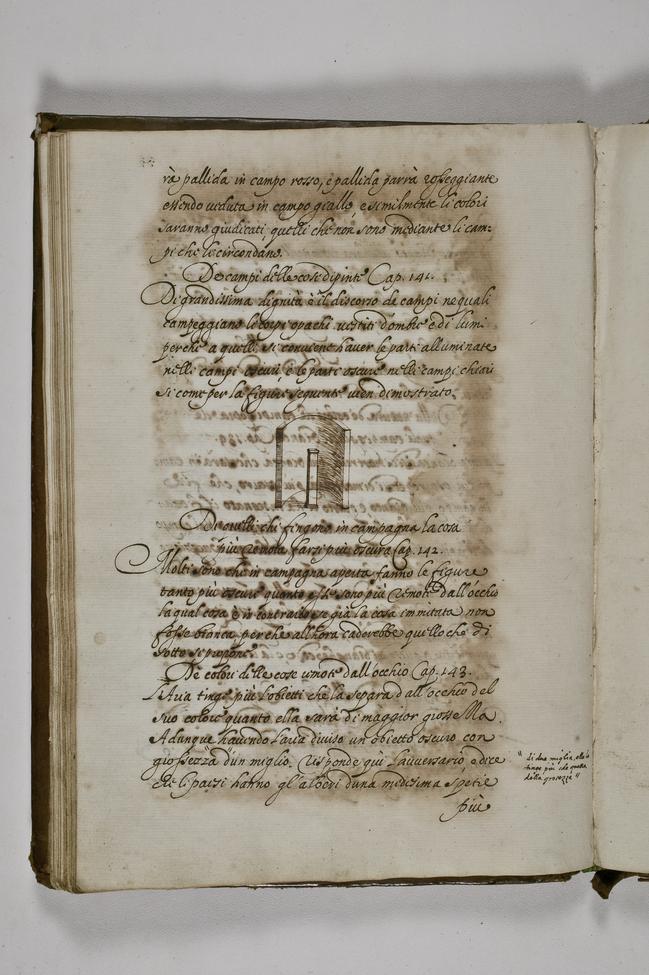 rà pallida in campo rosso, è pallida parrà rosseggiante
essendo ueduta in campo giallo, e similmente li colori
saranno giudicati, quelli che non sono mediante li cam:
pi che li circondano.
De campi delle cose dipinte Cap. 141.
Di grandissima dignità è il discorso de campi ne quali
campeggiano li corpi opachi uestiti d'ombre e di lumi
perche a quelli si conuiene hauer le parti alluminate
nelli campi oscuri, e le parti oscure nelli campi chiari
si come per la figura seguente uien dimostrato.
De quelli chi fingono in campagna la cosa
più remota farsi più oscura Cap. 142.
Molti sono che in campagna aperta fanno le figure
tanto più oscure quanto esse sono più remote dall'occhio
la qual cosa è in contrario, se già la cosa immitata non
fosse bianca perche all'hora caderebbe quello che di
sotto si propone.
De colori delle cose remote dall'occhio Cap. 143.
L'Aria tinge più l'obietti che la separa dall'occhio del
suo colore quanto ella sarà di maggior grossezza.
Adunque hauendo l'aria diuiso un obietto oscuro con
grossezza d'un miglio. Risponde qui l'auuersario e dice
che li paesi hanno gl'alberi d'una medesima spetie
più
" di due miglia, ella lo
tinge più che quella
della grossezza "